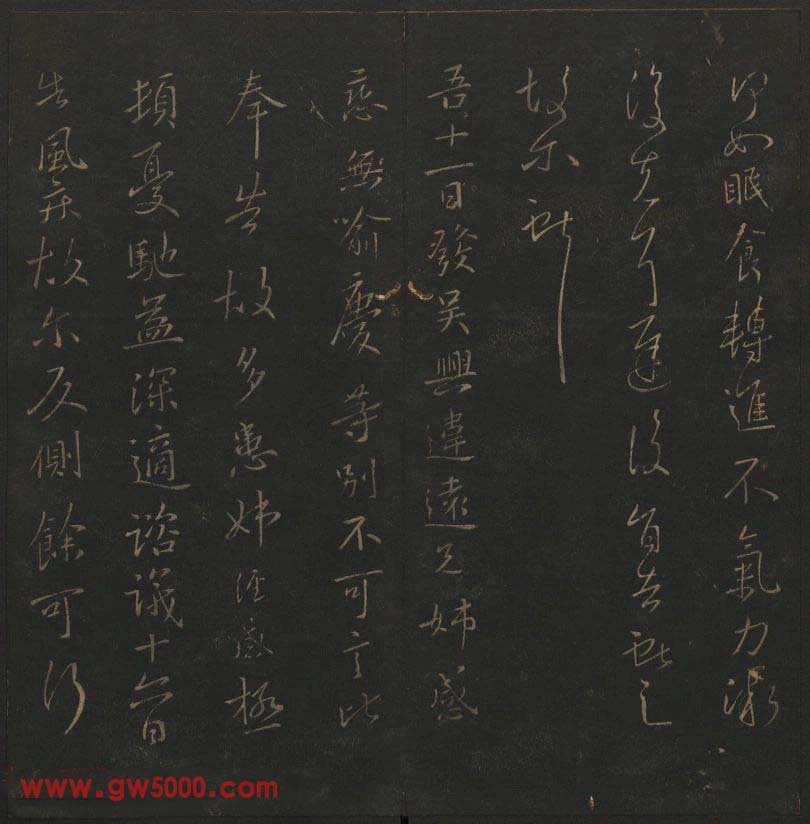 眠食轉進不氣力漸
復
故尓
吾十一日發吳興違遠兄姊感
戀無喻慶等別不可言比
奉告故多患姊經感極
頓憂馳益深適諮議十六日
告風疾故尓反側餘可行
www.gw5000.com